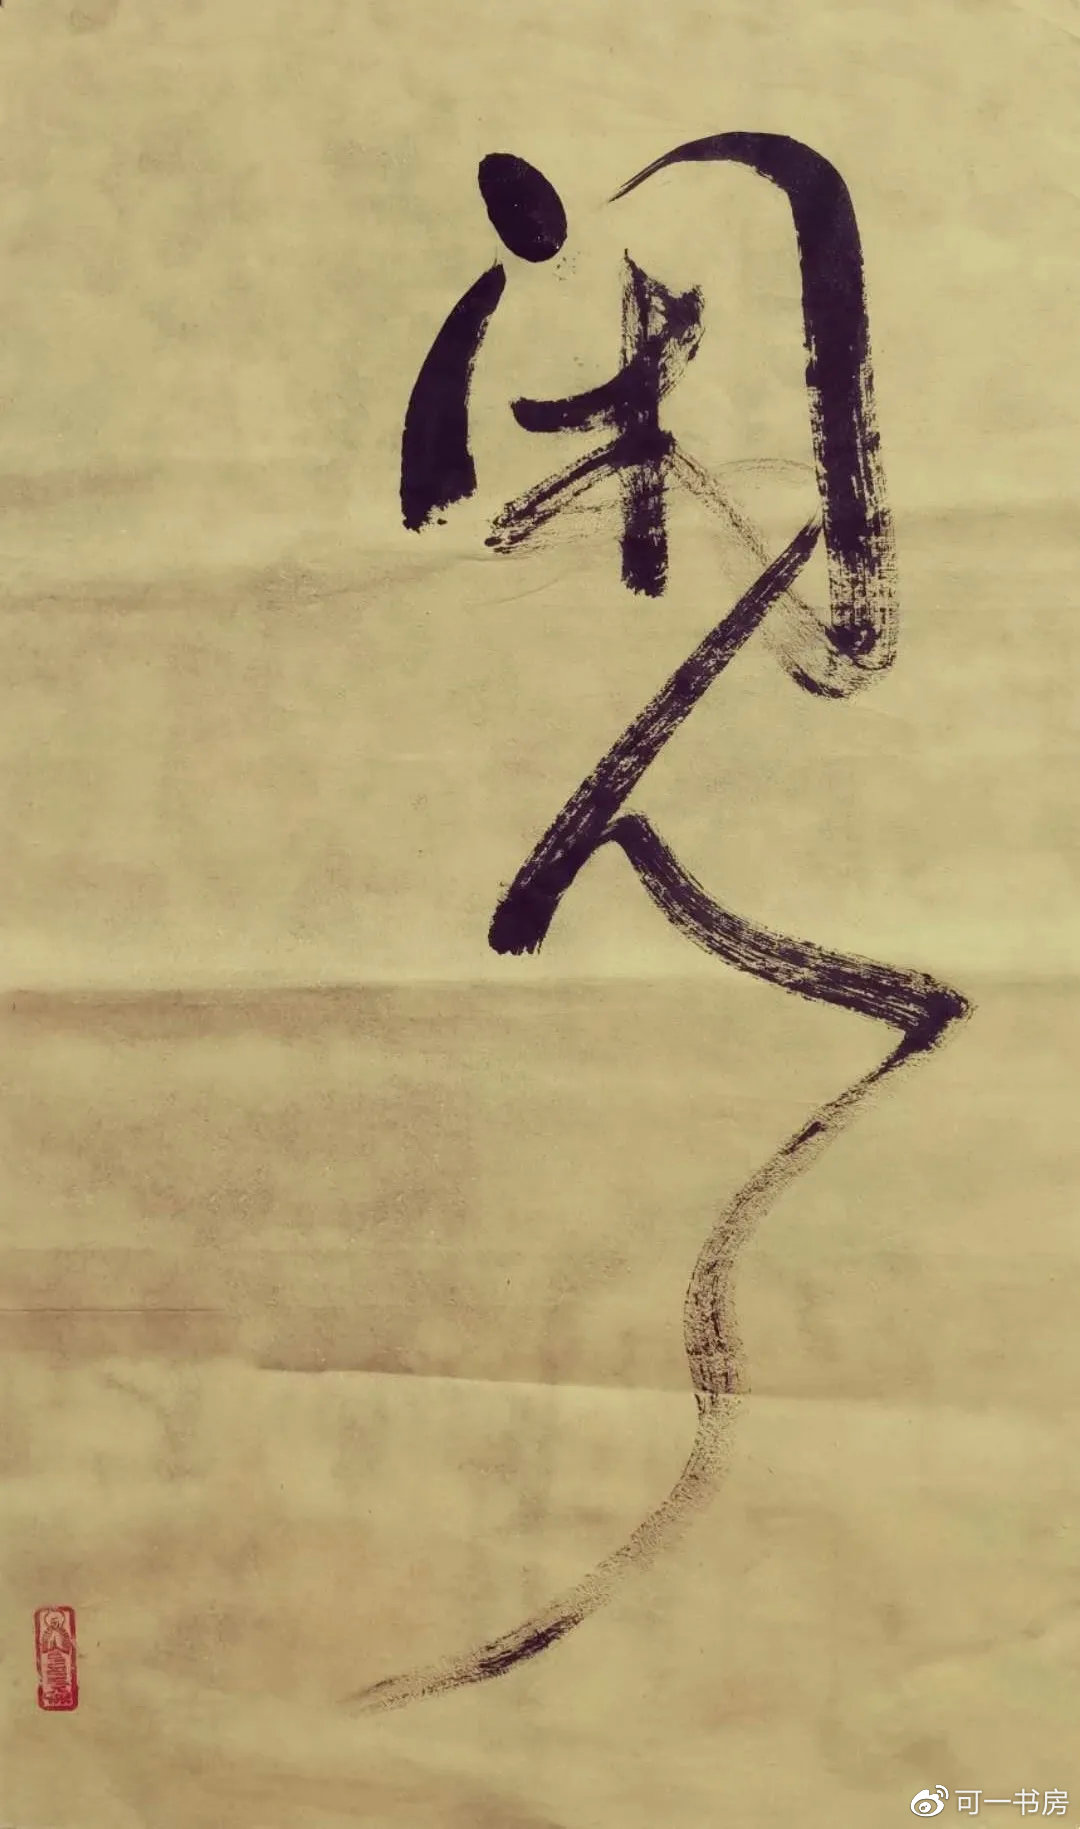 闲人
可一书房